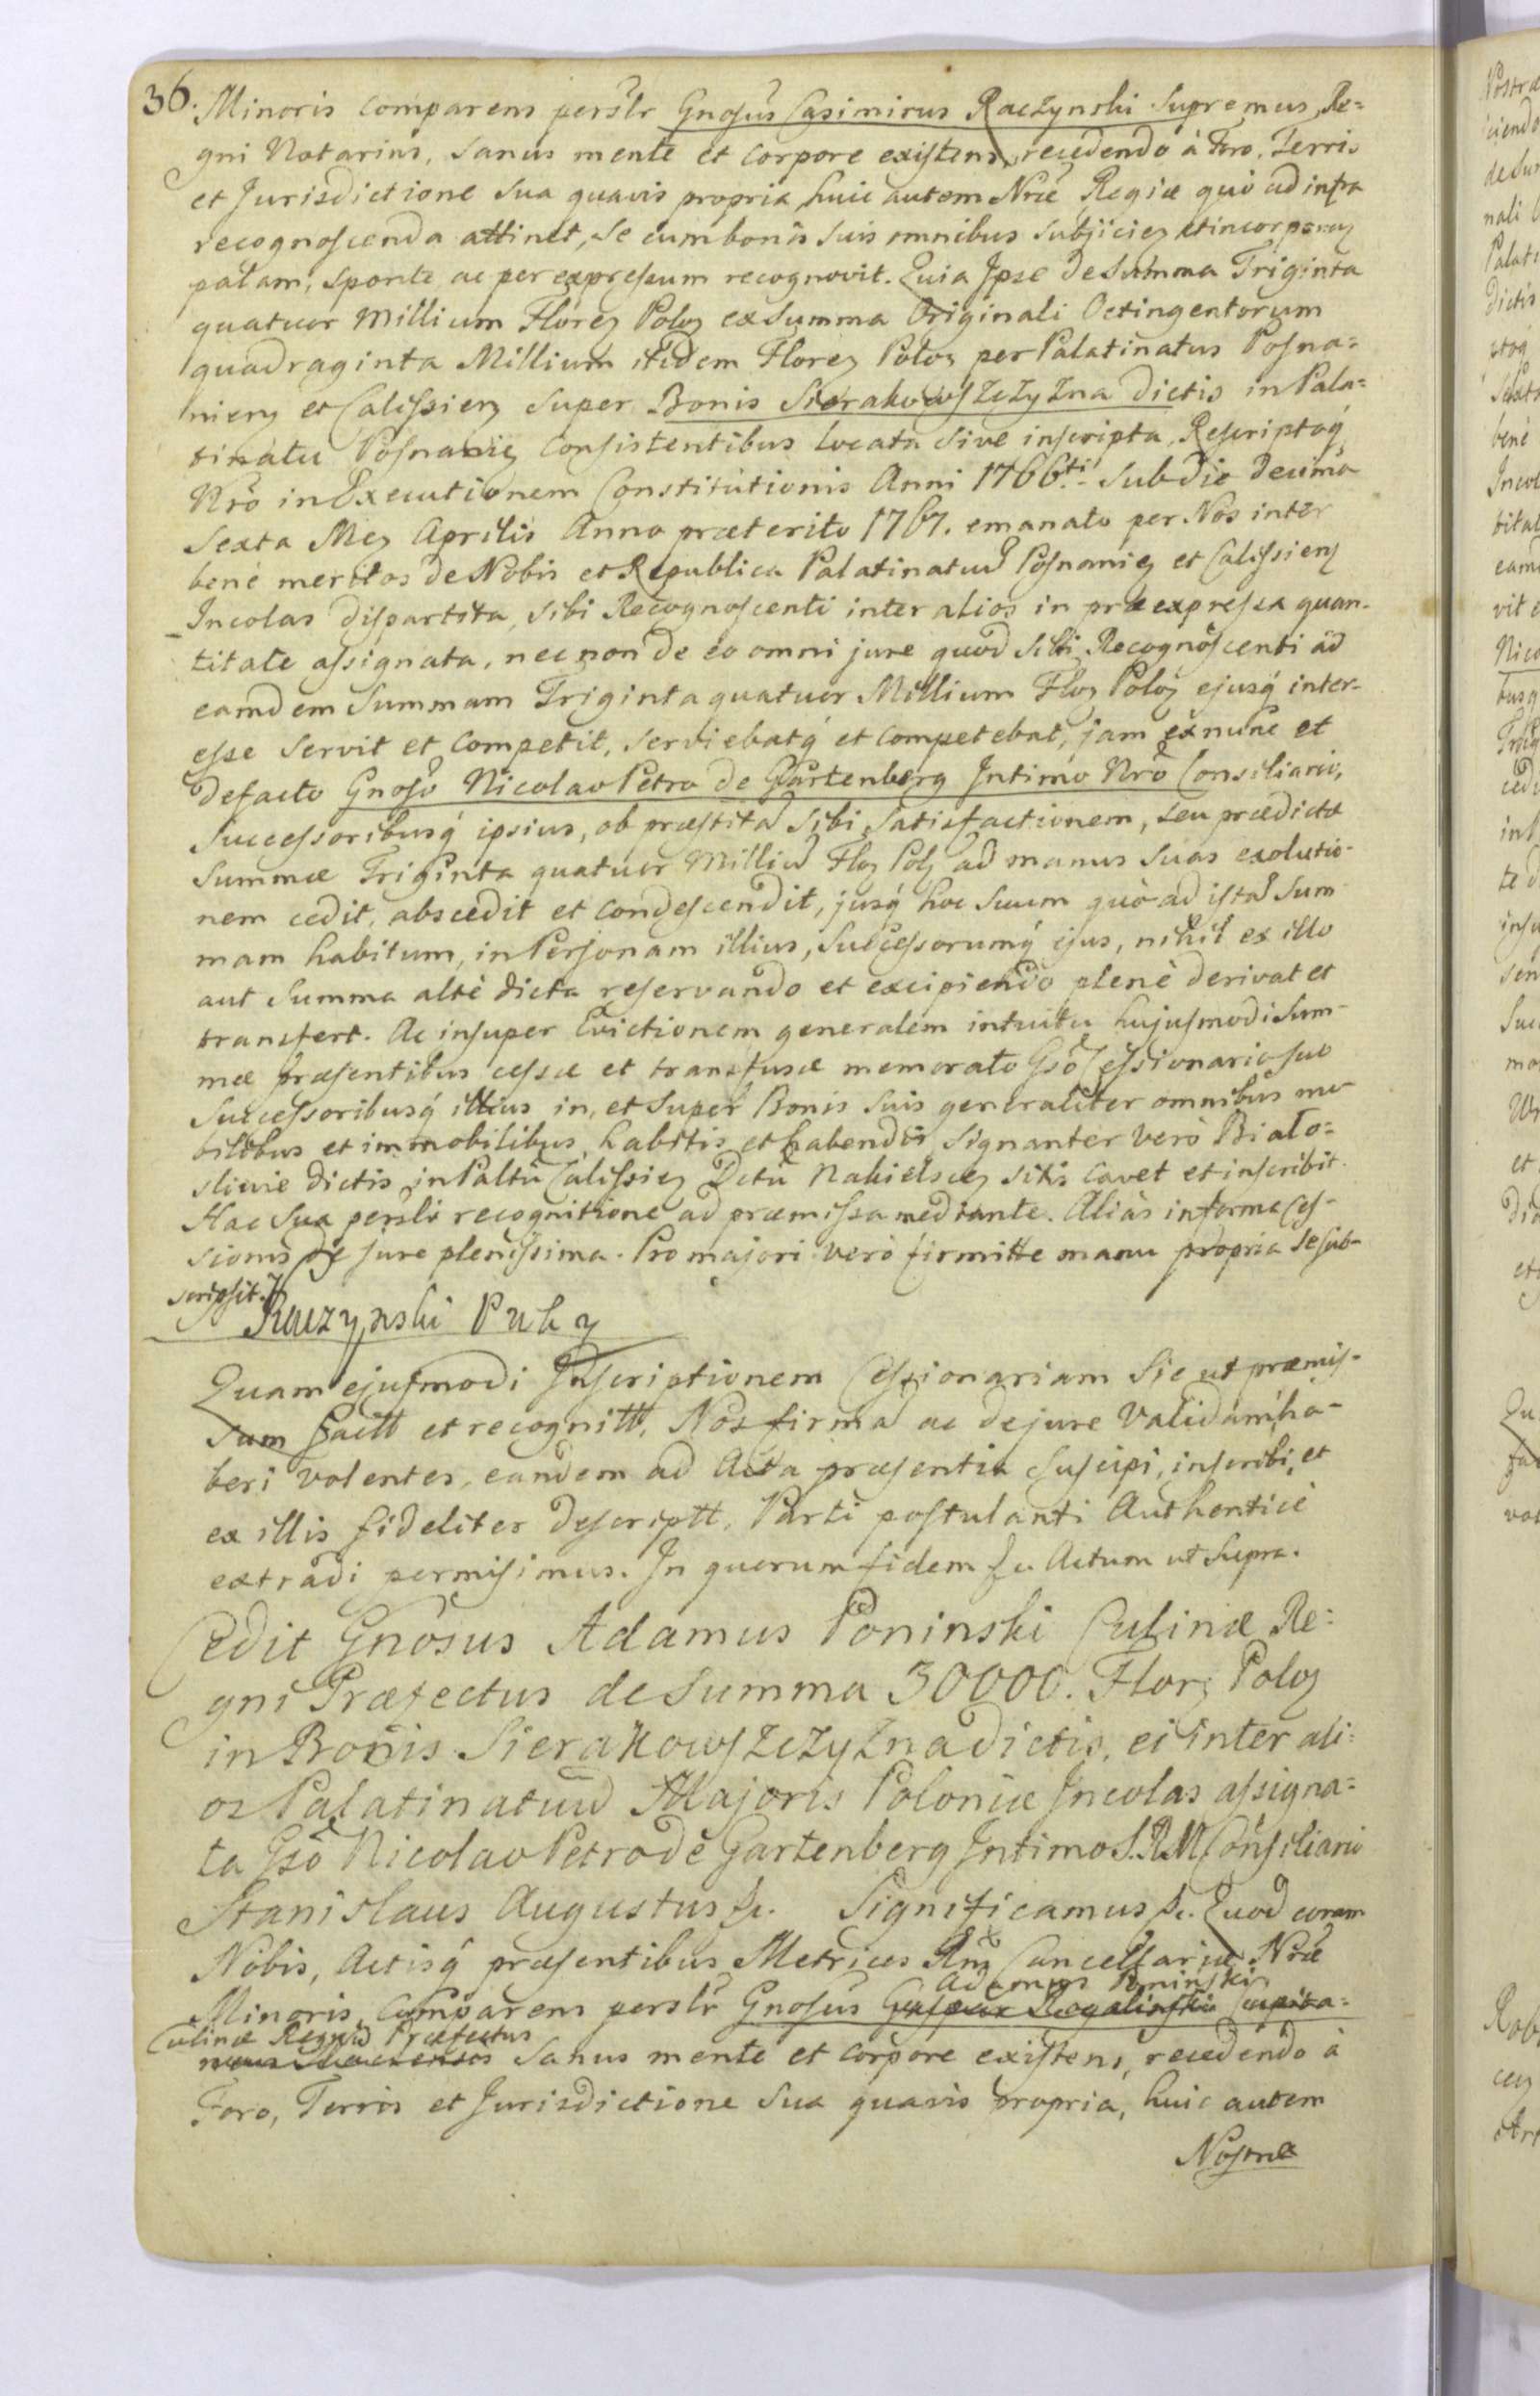 36. Minoris comparens persłr Gnosus Casimirus Raczynski Supremus Re=
gni Notarius, Sanus mente et corpore existens, recedendo à Foro, Terris
et Jurisdictione Sua quavis propria, huic autem Nræ Regiæ quò ad infra
recognoscenda attinet, Se cum bonis Suis omnibus Subjiciez et incorporaz
palam, Sponte ac per expressum recognovit. Quia Ipse de Summa Triginta
quatuor Millium Florez Poloz ex Summa Originali Octingentorum
quadraginta Millium itidem Florez Poloz per Palatinatus Posna=
niesz et Calissiesz Super Bonis Sierakowszczyzna dictis in Pala=
tinatu Posnaniez consistentibus locata sive inscripta, Rescriptoq́
Nrõ in Executionem Constitutionis Anni 1766ti Sub die decima
Sexta Mez Aprilis Anno præterito 1767. emanato per Nos inter
benè meritos de Nobis et Republica Palatinatuũ Posnaniez et Calissiez
Incolas dispartita, Sibi Recognoscenti inter alios in præexpressa quan-
titate assignata, nec non de eo omni jure quod Sibi Recognoscenti ad
eamdem Summam Triginta quatuor Millium Floz Poloz ejusq́ inter-
esse Servit et competit, Serviebatq́ et competebat, jam ex nunc et
defacto Gnoso Nicolao Petro de Gartenberg Intimo Nrõ Consiliario,
Successoribusq́ ipsius, ob præstitã Sibi Satisfactionem, seu prædictæ
Summæ Triginta quatuor Milliũ Floz Polz ad manus Suas exolutio-
nem cedit, abscedit et condescendit, jusq́ hoc Suum quò ad istã Sum
mam habitum, in Personam illius, Successorumq́ ejus, nihil ex illo
aut Summa altè dicta reservando et excipiendo plenè derivat et
transfert. Ac insuper Evictionem generalem intuitu hujusmodi Sum-
mæ præsentibus cessæ et transfusæ memorato Gsõ Cessionario Suo
Successoribusq́ illius in, et Super Bonis Suis generaliter omnibus mo-
bilibus et immobilibus, habitis et habendis, signanter verò Biało-
sliwie dictis in Paltũ Calissiez Dctũ Nakielscez sitis cavet et inscribit.
Hac Sua persłi recognitione ad præmissa mediante. Aliàs in forma Ces-
sionis de jure plenissima. Pro majori verò firmitte manu propria se sub-
scripsit.
Raczynski P
Quam ejusmodi Inscriptionem Cessionariam Sic ut præmis-
sum factt et recognitt, Nos firmã ac de jure Validam ha-
beri volentes, eandem ad Acta præsentia Suscipi, inscribi, et
ex illis fideliter descriptt, Parti postulanti Authenticè
extradi permisimus. In quorum fidem &c. Actum ut Supra.
Cedit Gnosus Adamus Poninski Culinæ Re=
gni Præfectus de Summa 30000. Florz Poloz
in Bonis Sierakowszczyzna dictis, ei inter ali=
os Palatinatuũ Majoris Poloniæ Incolas assigna=
ta Gsõ Nicolao Petro de Gartenberg Intimo S.R.M. Consiliario
Stanislaus Augustus &c. Significamus &c. Quod coram
Nobis, Actisq́ præsentibus Metrices Rnĩ Cancellariæ Nræ
Adamus Poninski
Minoris, comparens persłr Gnosus Gaspar Rogalinski Capita=
Culinæ Regni Præfectus
neus Sanus mente et corpore existens, recedendo à
Foro, Terris et Jurisdictione Sua quavis propria, huic autem
Nostræ